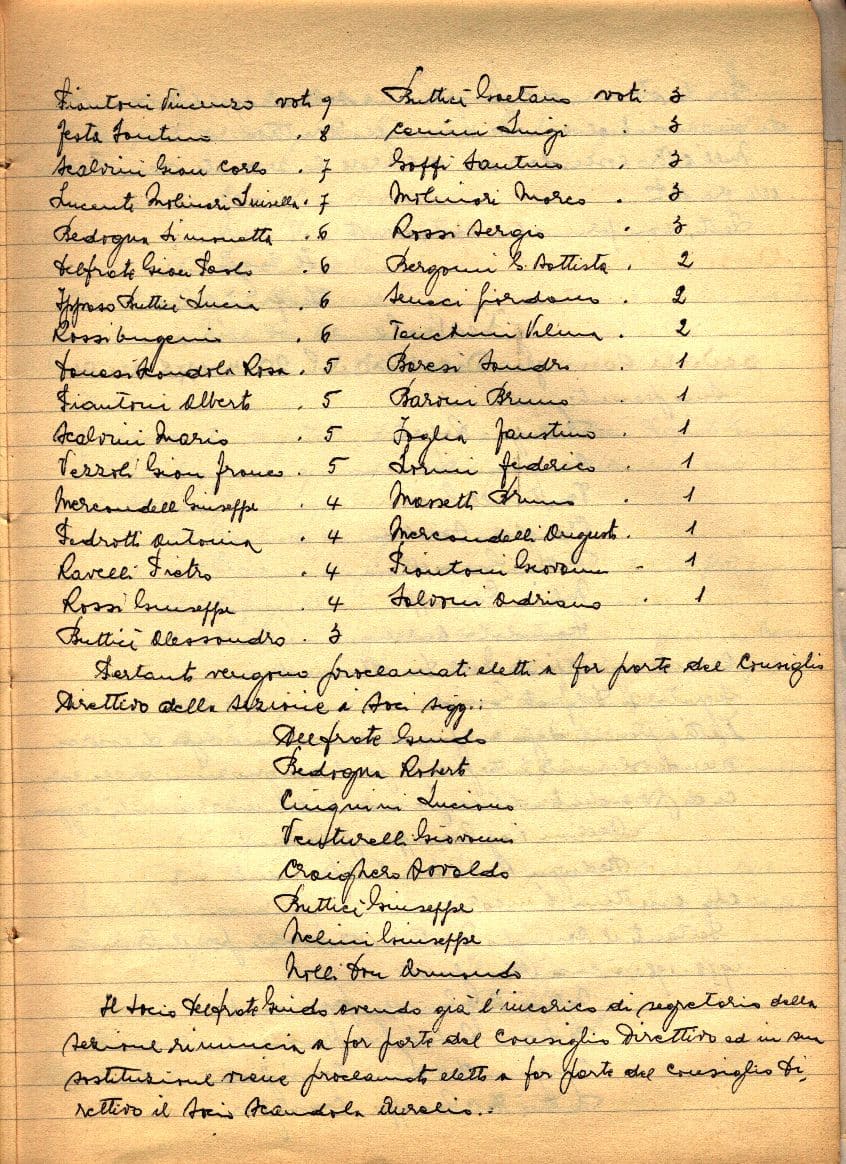 Piantoni Vincenzo voti 9
Testa Santino . 8
Scalvini Gian Carlo . 7
Lucenti Molinari Luisella . 7
Bedogna Simonetta . 6
Delfrate Gian Paolo . 6
Butticé Lucia . 6
Rossi Eugenio . 6
Scandola Rosa . 5
Piantoni Alberto . 5
Scalvini Mario . 5
Vezzoli Gian Franco . 5
Mercandelli Giuseppe . 4
Pedrotti Antonia . 4
Ravelli Pietro . 4
Rossi Giuseppe . 4
Butticé Alessandro . 3
Butticé Gaetano voti 3
Luigi . 3
Goffi Santino . 3
Molinari Marco . 3
Rossi Sergio . 3
Bergomi G. Battista . 2
Giordano . 2
Vilma . 2
Baresi Sandro . 1
Baroni Bruno . 1
Foglia Faustino . 1
Lorini Federico . 1
Massetti Bruno . 1
Mercandelli Augusto . 1
Piantoni Giovanni - 1
Salvoni Adriano . 1
Pertanto vengono proclamati eletti a far parte del Consiglio
Direttivo della Sezione i Soci sigg.:
Delfrate Guido
Bedogna Roberto
Cinquini Luciano
Venturelli Giovanni
Craighero Osvaldo
Butticé Giuseppe
Melini Giuseppe
Nolli Don Armando
Il Socio Delfrate Guido avendo già l'incarico di segretario della
sezione rinuncia a far parte del Consiglio Direttivo ed in sua
sostituzione viene proclamato eletto a far parte del Consiglio Di,
rettivo il Socio Scandola Aurelio..